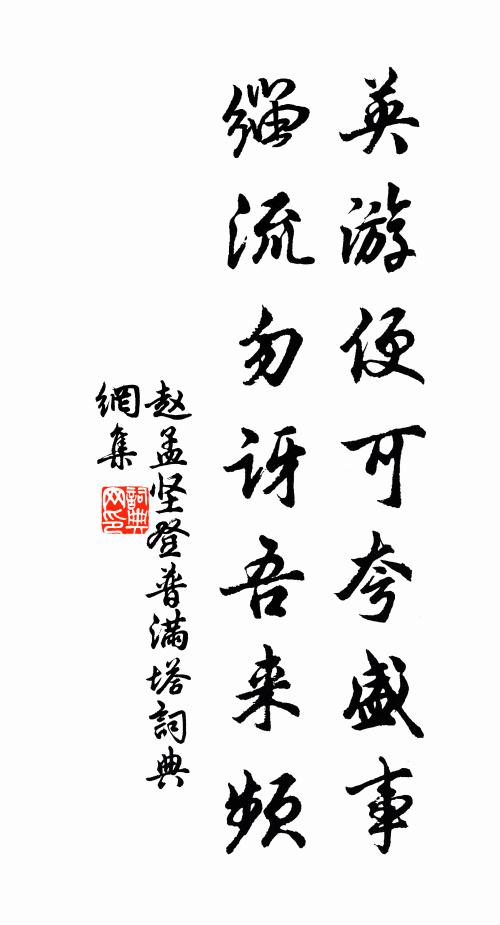 英游便可夸盛事
缁流勿讶吾来频
赵孟坚登普满塔詞典
網集
詞典
网印